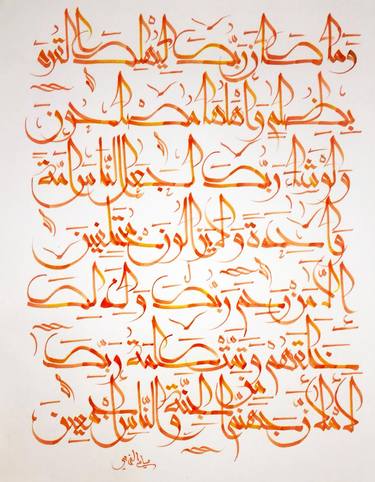 وما كان ربك ليهلك القرى
بظلم وأهلها مصلحون
ولو شاء ربك لجعل الناس أمة
واحدة ولا يزالون مختلفين
إلا من رحم ربك ولذلك
خلقهم وتمت كلمة ربك
لأملأن جهنم من الجنة والناس أجمعين